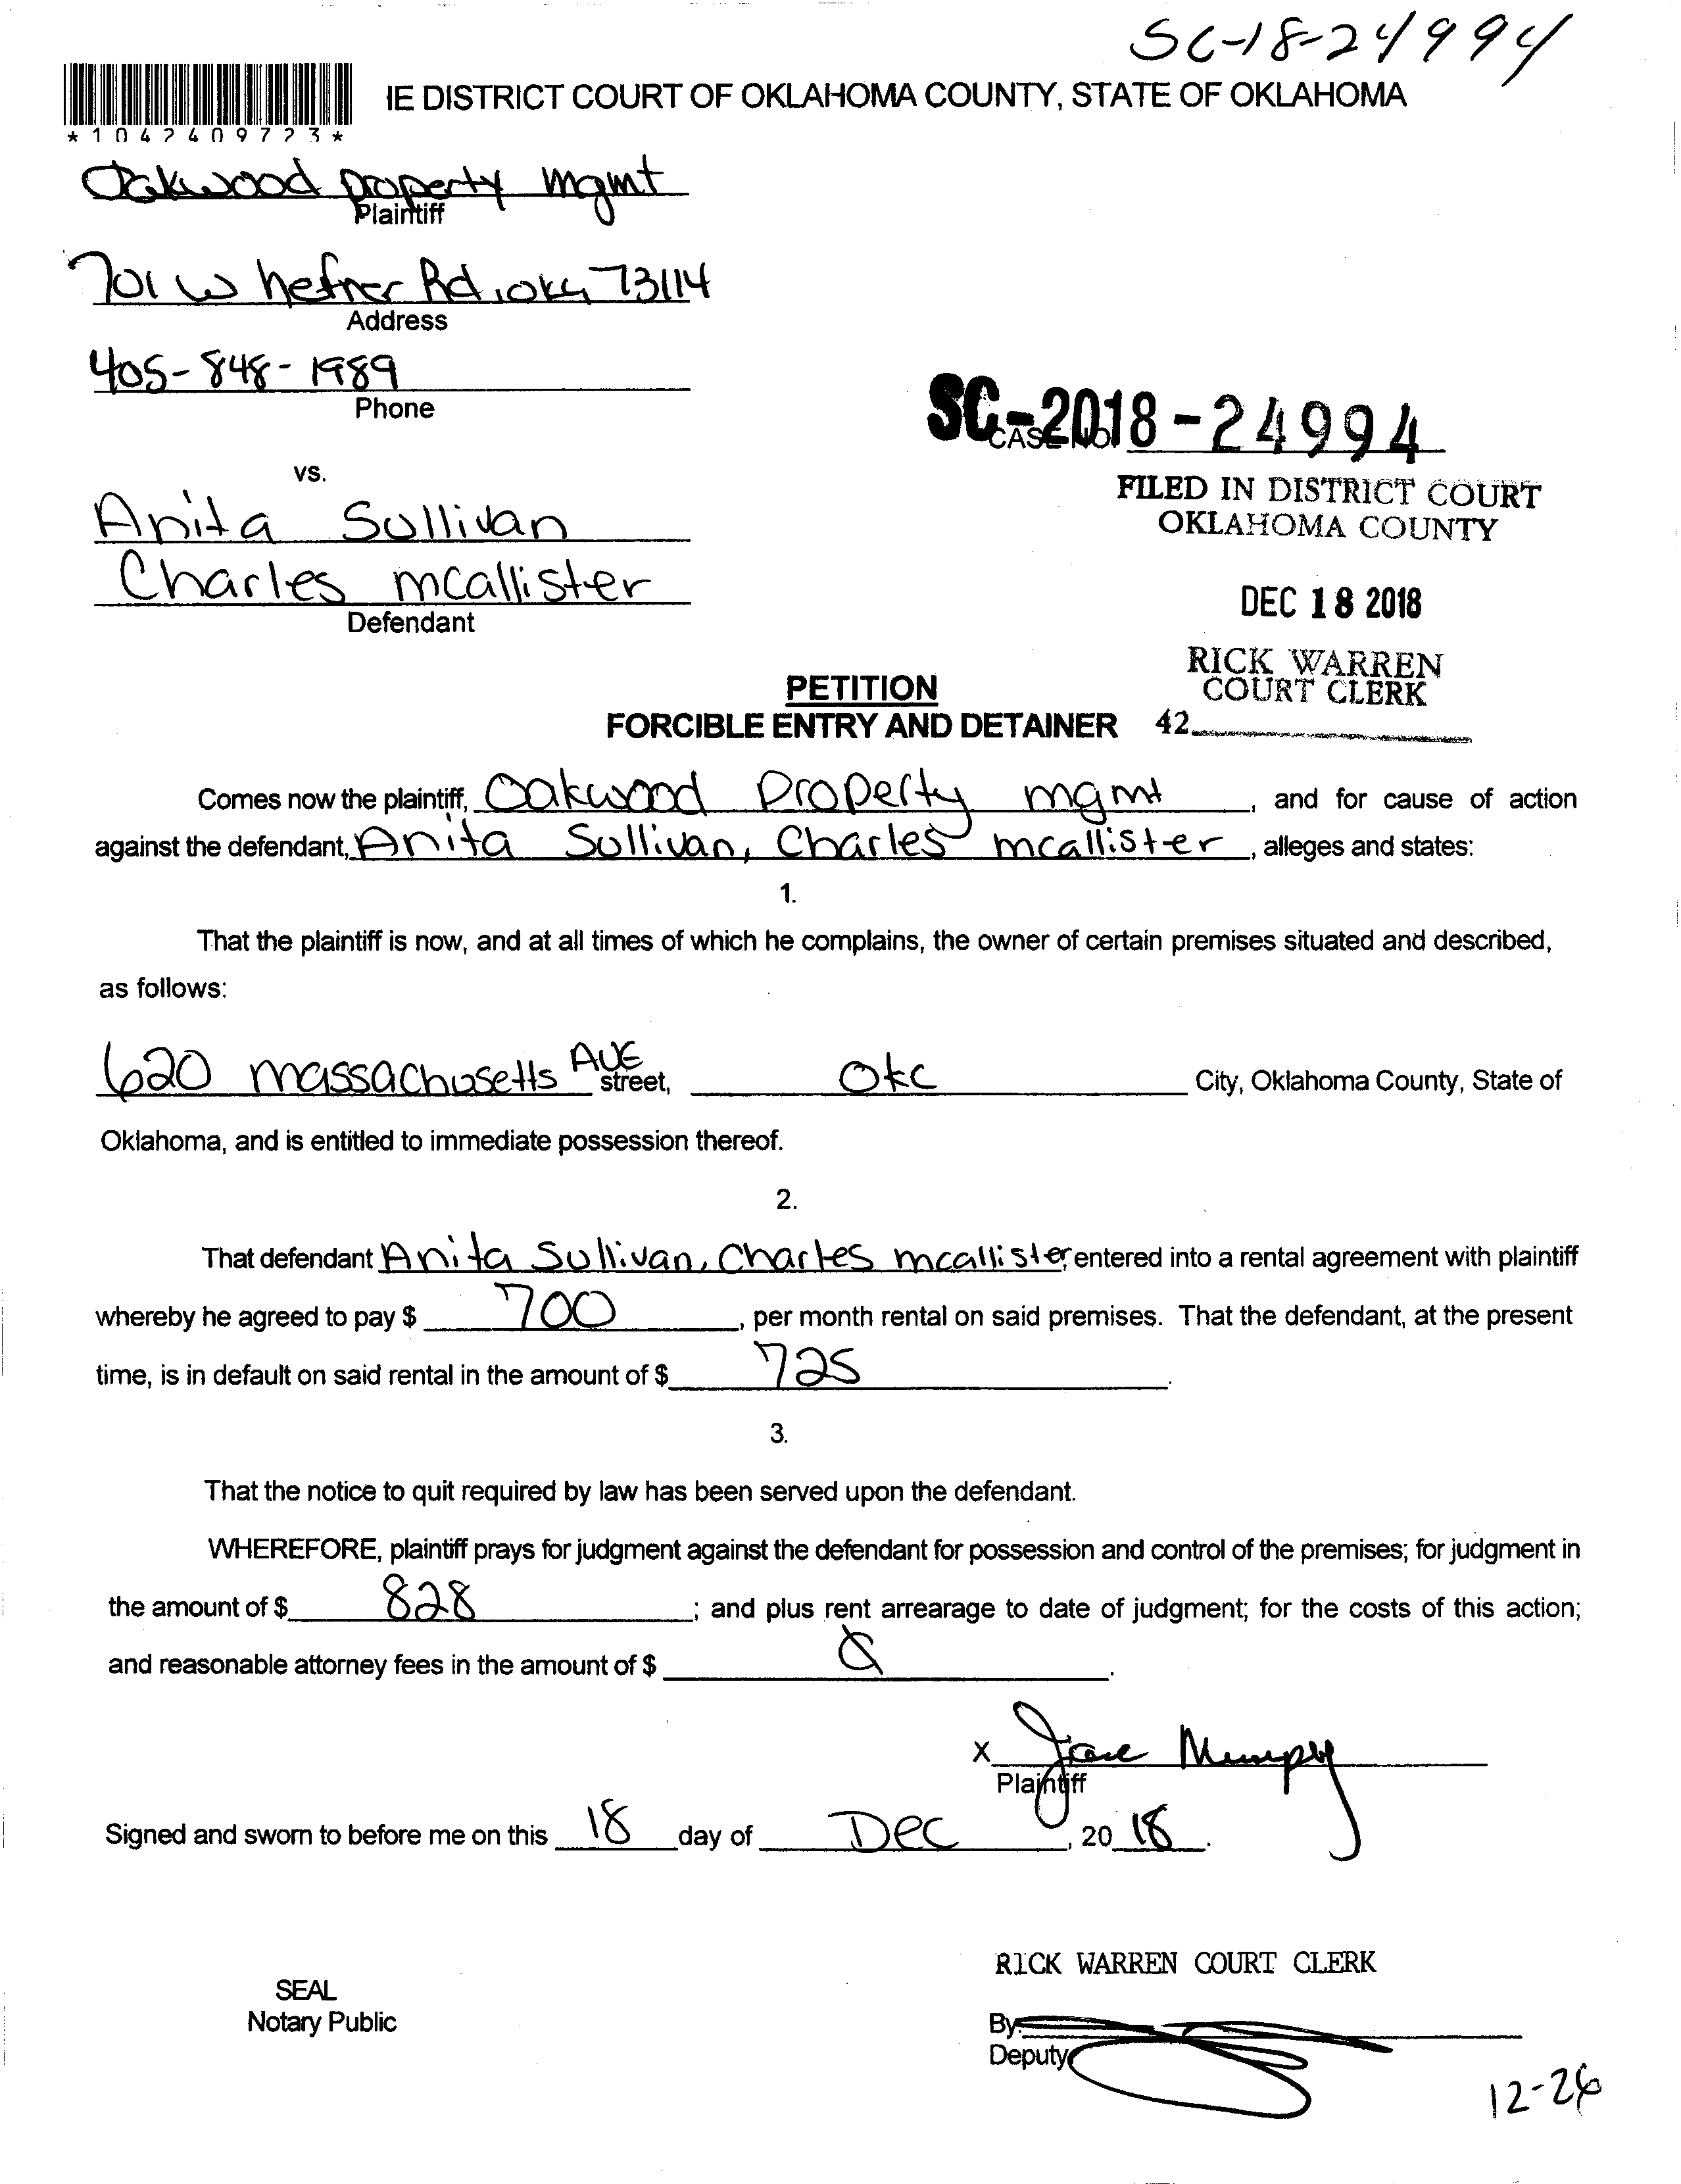 SC-18-24994
IE DISTRICT COURT OF OKLAHOMA COUNTY, STATE OF OKLAHOMA
*1042409723*
Oakwood property mgmt
Plaintiff
701 W hefner Rd, okc, 73114
Address
405-848-1989
Phone
SC-2018-24994
CASE NO.
vs.
FILED IN DISTRICT COURT
OKLAHOMA COUNTY
Anita Sullivan
Charles mcallister
Defendant
DEC 18 2018
RICK WARREN
COURT CLERK
42
PETITION
FORCIBLE ENTRY AND DETAINER
Comes now the plaintiff, Oakwood Property mgmt, and for cause of action
against the defendant, Anita Sullivan, Charles mcallister, alleges and states:
1.
That the plaintiff is now, and at all times of which he complains, the owner of certain premises situated and described,
as follows:
620 massachusetts AVE street, OKC City, Oklahoma County, State of
Oklahoma, and is entitled to immediate possession thereof.
2.
That defendant Anita Sullivan, Charles mcallister, entered into a rental agreement with plaintiff
whereby he agreed to pay $ 700, per month rental on said premises. That the defendant, at the present
time, is in default on said rental in the amount of $ 725.
3.
That the notice to quit required by law has been served upon the defendant.
WHEREFORE, plaintiff prays for judgment against the defendant for possession and control of the premises; for judgment in
the amount of $ 828; and plus rent arrearage to date of judgment; for the costs of this action;
and reasonable attorney fees in the amount of $ .
X
Plaintiff
Signed and sworn to before me on this 18 day of Dec, 20 18.
RICK WARREN COURT CLERK
SEAL
Notary Public
By:
Deputy
12-26